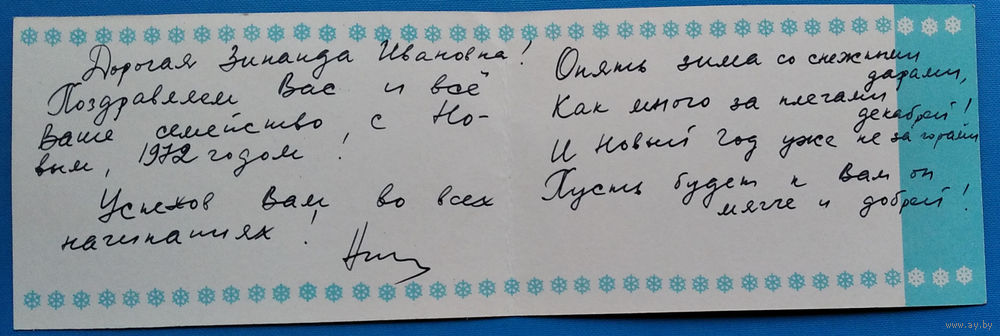 Дорогая Зинаида Ивановна!
Поздравляем Вас и всё
Ваше семейство, с Но-
вым, 1972 годом!
Успехов Вам во всех
начинаниях!
Опять зима со снежными
дарами,
Как много за плечами
декабрей!
И Новый Год уже не за горами
Пусть будет к Вам он
мягче и добрей!
www.ay.by